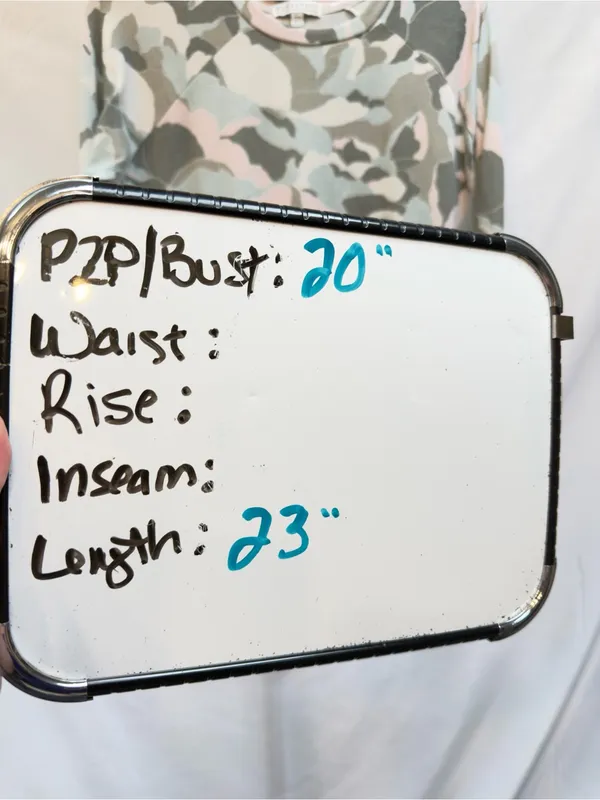 P2P/Bust: 20"
Waist:
Rise:
Inseam:
Length: 23"